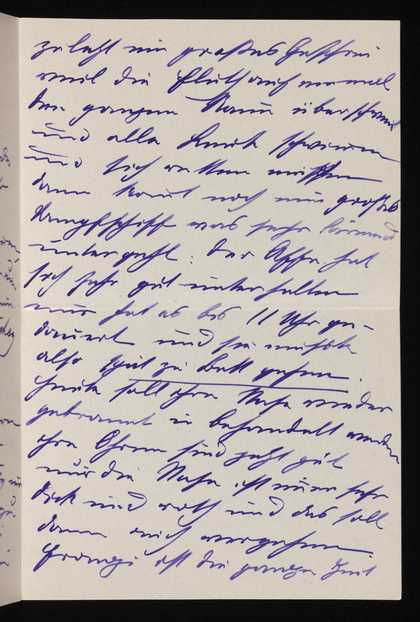 zuletzt ein großes Geschrei
weil die Fluth auf einmal
den ganzen Raum überschwemmt
und alle Leute schwimmen
und sich retten müssen
dann kommt noch ein großes
Dampfschiff was sehr brennend
untergeht. Der Affe hat
sich sehr gut unterhalten
nur hat es bis 11 Uhr ge-
dauert und sie mußte
also spät zu Bett gehen.
Heute soll ihre Nase wieder
gebrannt u behandelt werden
ihre Ohren sind jetzt gut
nur die Nase ist immer sehr
dick und roth und das soll
dann auch vergehen.
Franzi ist die ganze Zeit